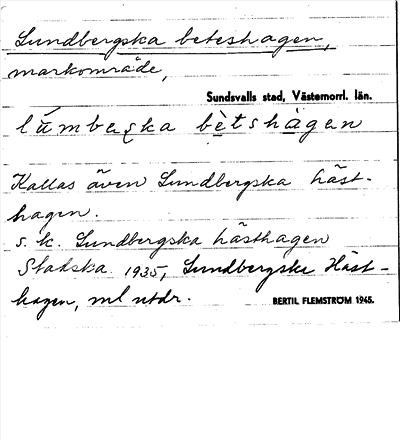 Lundbergska beteshagen,
markområde,
Sundsvalls stad, Västernorrl. län.
Kallas även Lundbergska häst-
hagen.
s. k. Lundbergska hästhagen
Stadska. 1935, Lundbergska Häst-
hagen, ml utdr.
BERTIL FLEMSTRÖM 1945.